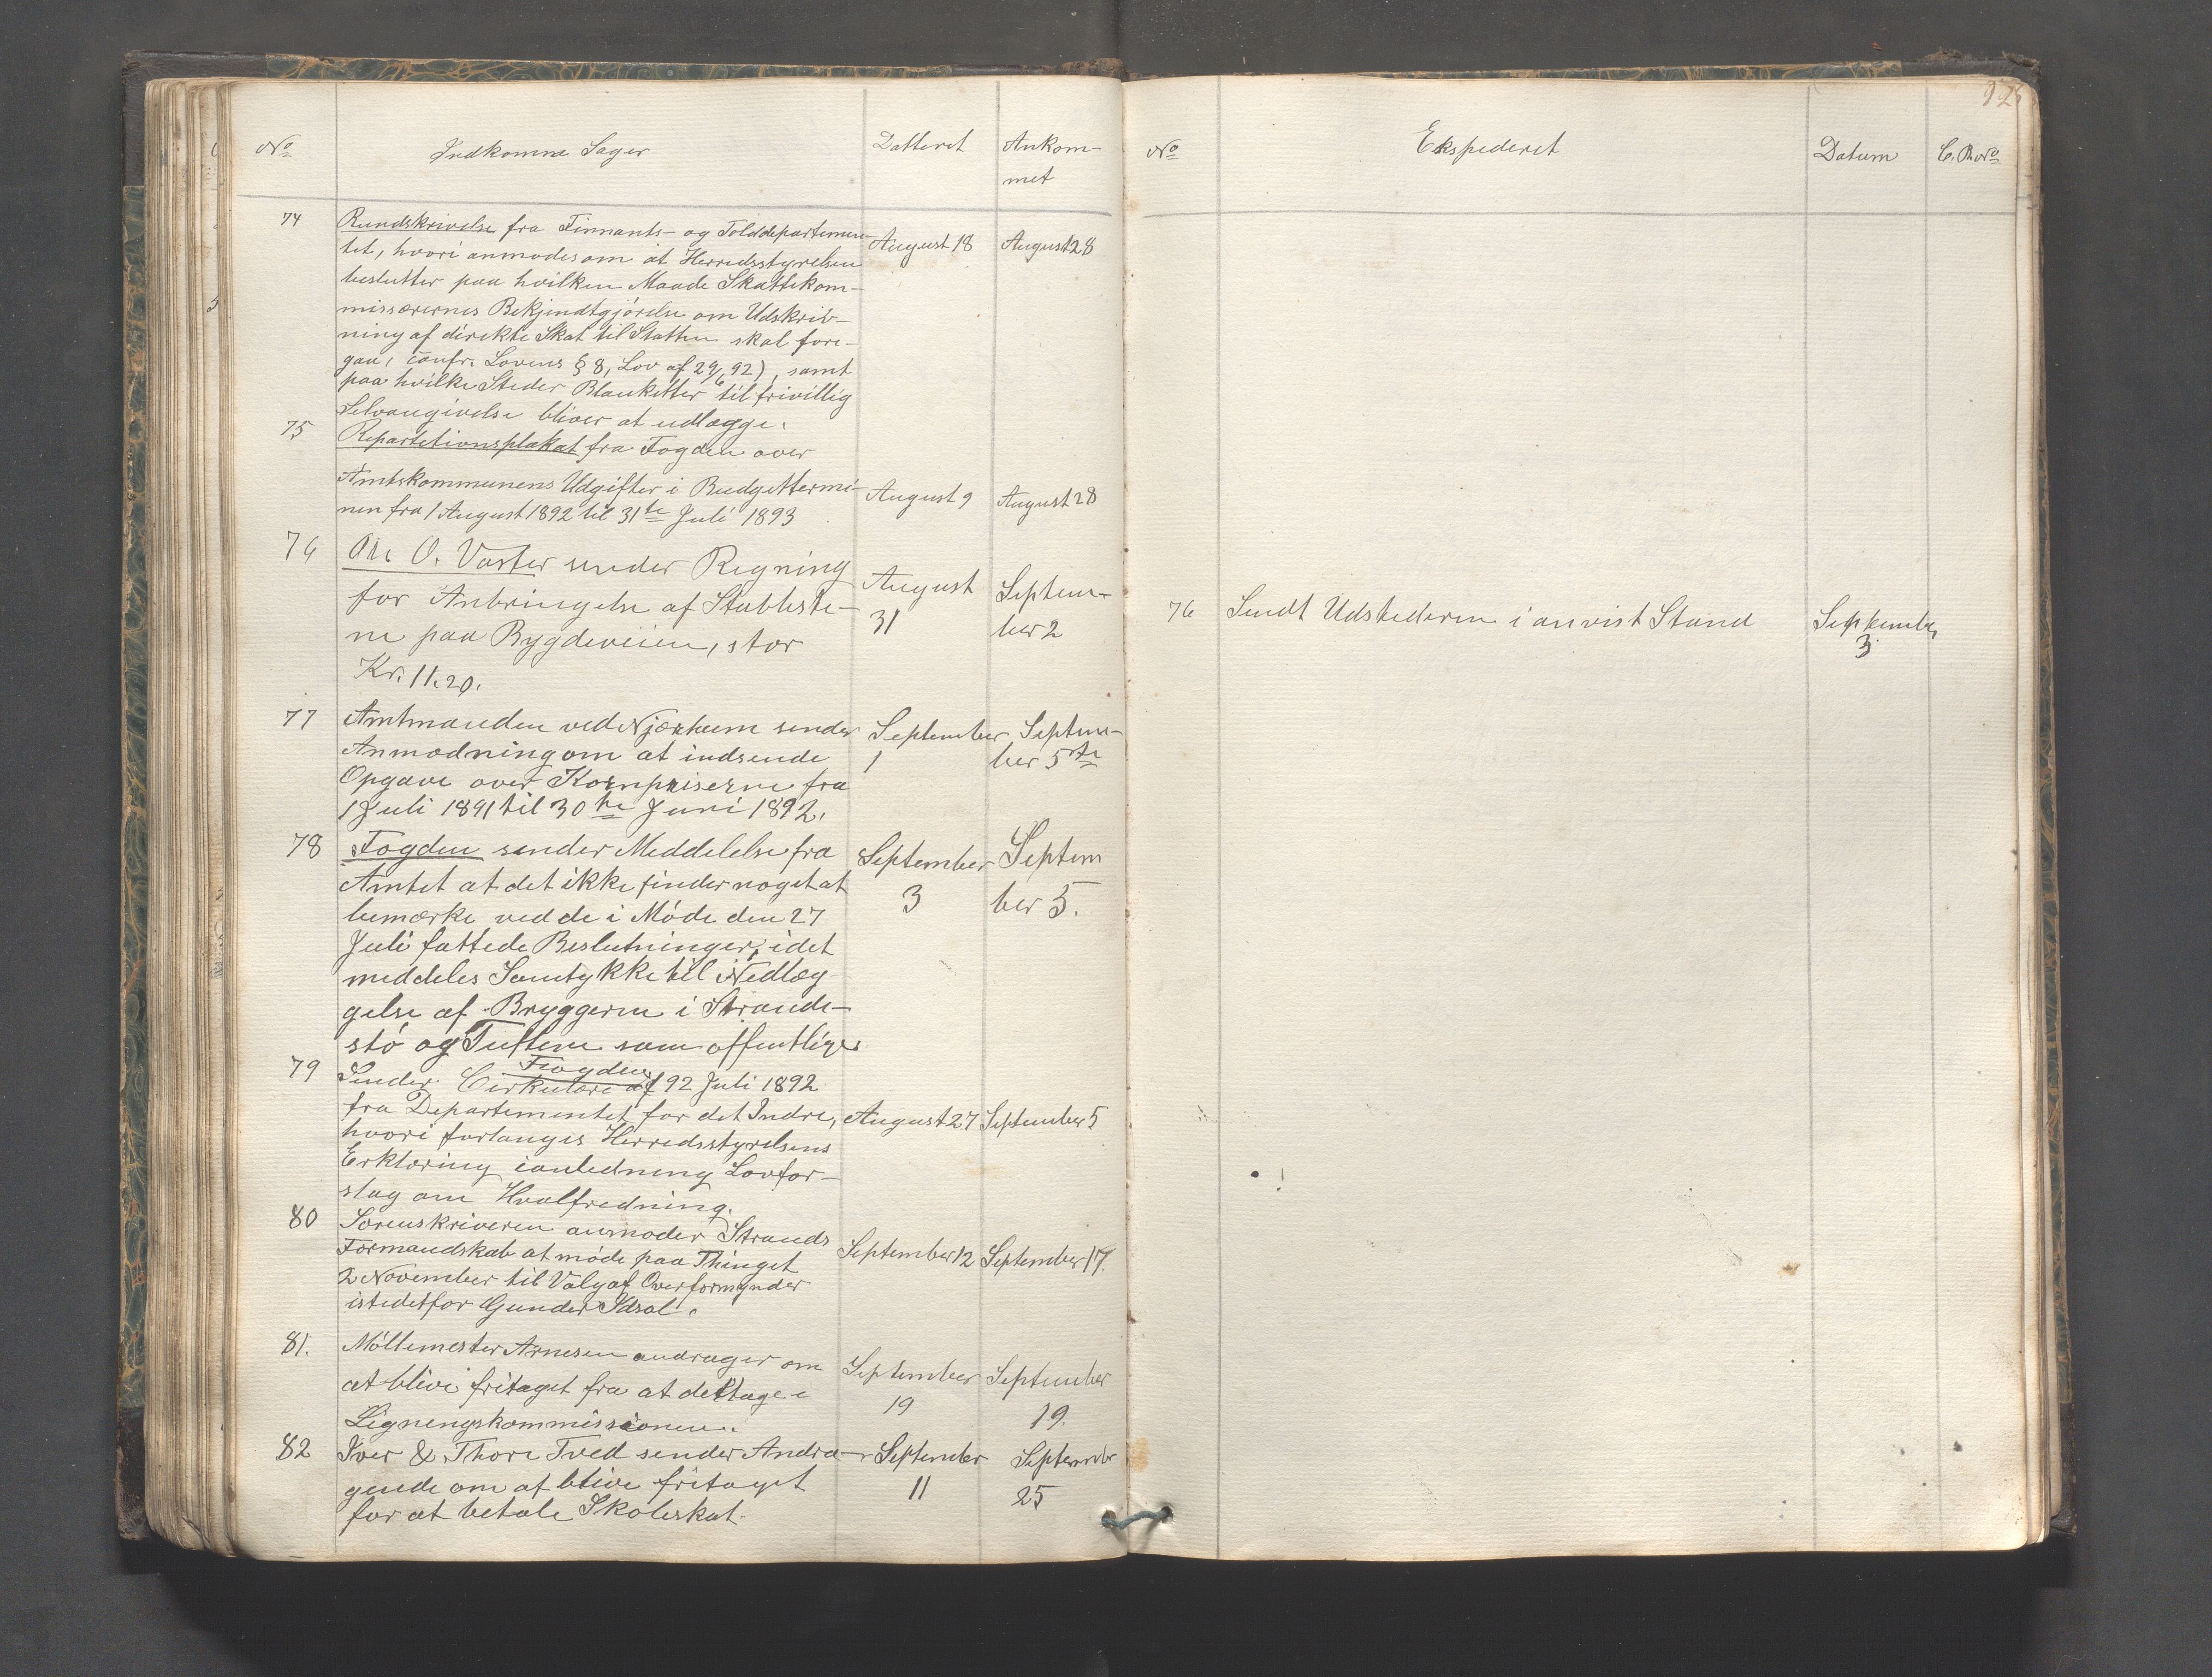 No
Indkomne Sager
Datteret
Ankom-
met
74
Rundskrivelse fra Finnants- og Tolddepartemen-
tet, hvori anmodes om at Herredsstyrelsen
beslutter paa hvilken Maade Skattekom-
missærernes Bekjendtgjórelse om Udskriv-
ning af direkte Skat til Statten skal fore-
gaa, confr. Lovens § 8, Lov af 29/6 92), samt
paa hvilke Steder Blanketter til frivillig
Selvangivelse bliver at udlægge.
August 18
August 28
75
Repartetionsplakat fra Fogden over
Amtskommunens Udgifter i Budgettermi-
nen fra 1 August 1892 til 31te Juli 1893
August 9
August 28
76
Ole O. Vaster sender Regning
for Anbringelse af Stabbeste-
ne paa Bygdeveien, stor
Kr. 11.20.
August
31
Septem-
ber 2
77
Amtmanden ved Njærheim sender
Anmodning om at indsende
Opgave over Kornpriserne fra
1 Juli 1891 til 30te Juni 1892.
September
1
Septem-
ber 5te
78
Fogden sender Meddelelse fra
Amtet at det ikke finder noget at
bemærke ved de i Móde den 27
Juli fattede Beslutninger, idet
meddeles Samtykke til Nedlæg
gelse af Bryggerne i Strande-
stó og Tuftene som offentlige
September
3
Septem
ber 5.
79
Fogden
Sender Cirkulære af 92 Juli 1892
fra Departementet for det Indre,
hvori forlanges Herredsstyrelsens
Erklæring ianledning Lovfor-
slag om Hvalfredning.
August 27
September 5
80
Sorenskriveren anmoder Strands
Formandskab at móde paa Thinget
2 November til Valg af Overformynder
istedetfor Gunder Idsal.
September 12
September 17.
81.
Móllemester Arnesen andrager om
at blive fritaget fra at deltage i
Ligningskommissionen.
September
19
September
19.
82
Iver & Thore Tved sender Andra-
gende om at blive fritaget
for at betale Skoleskat.
September
11
September
25
No
Ekspederet
Datum
C. B. No
76
Sendt Udstederen i anvist Stand
September
3.